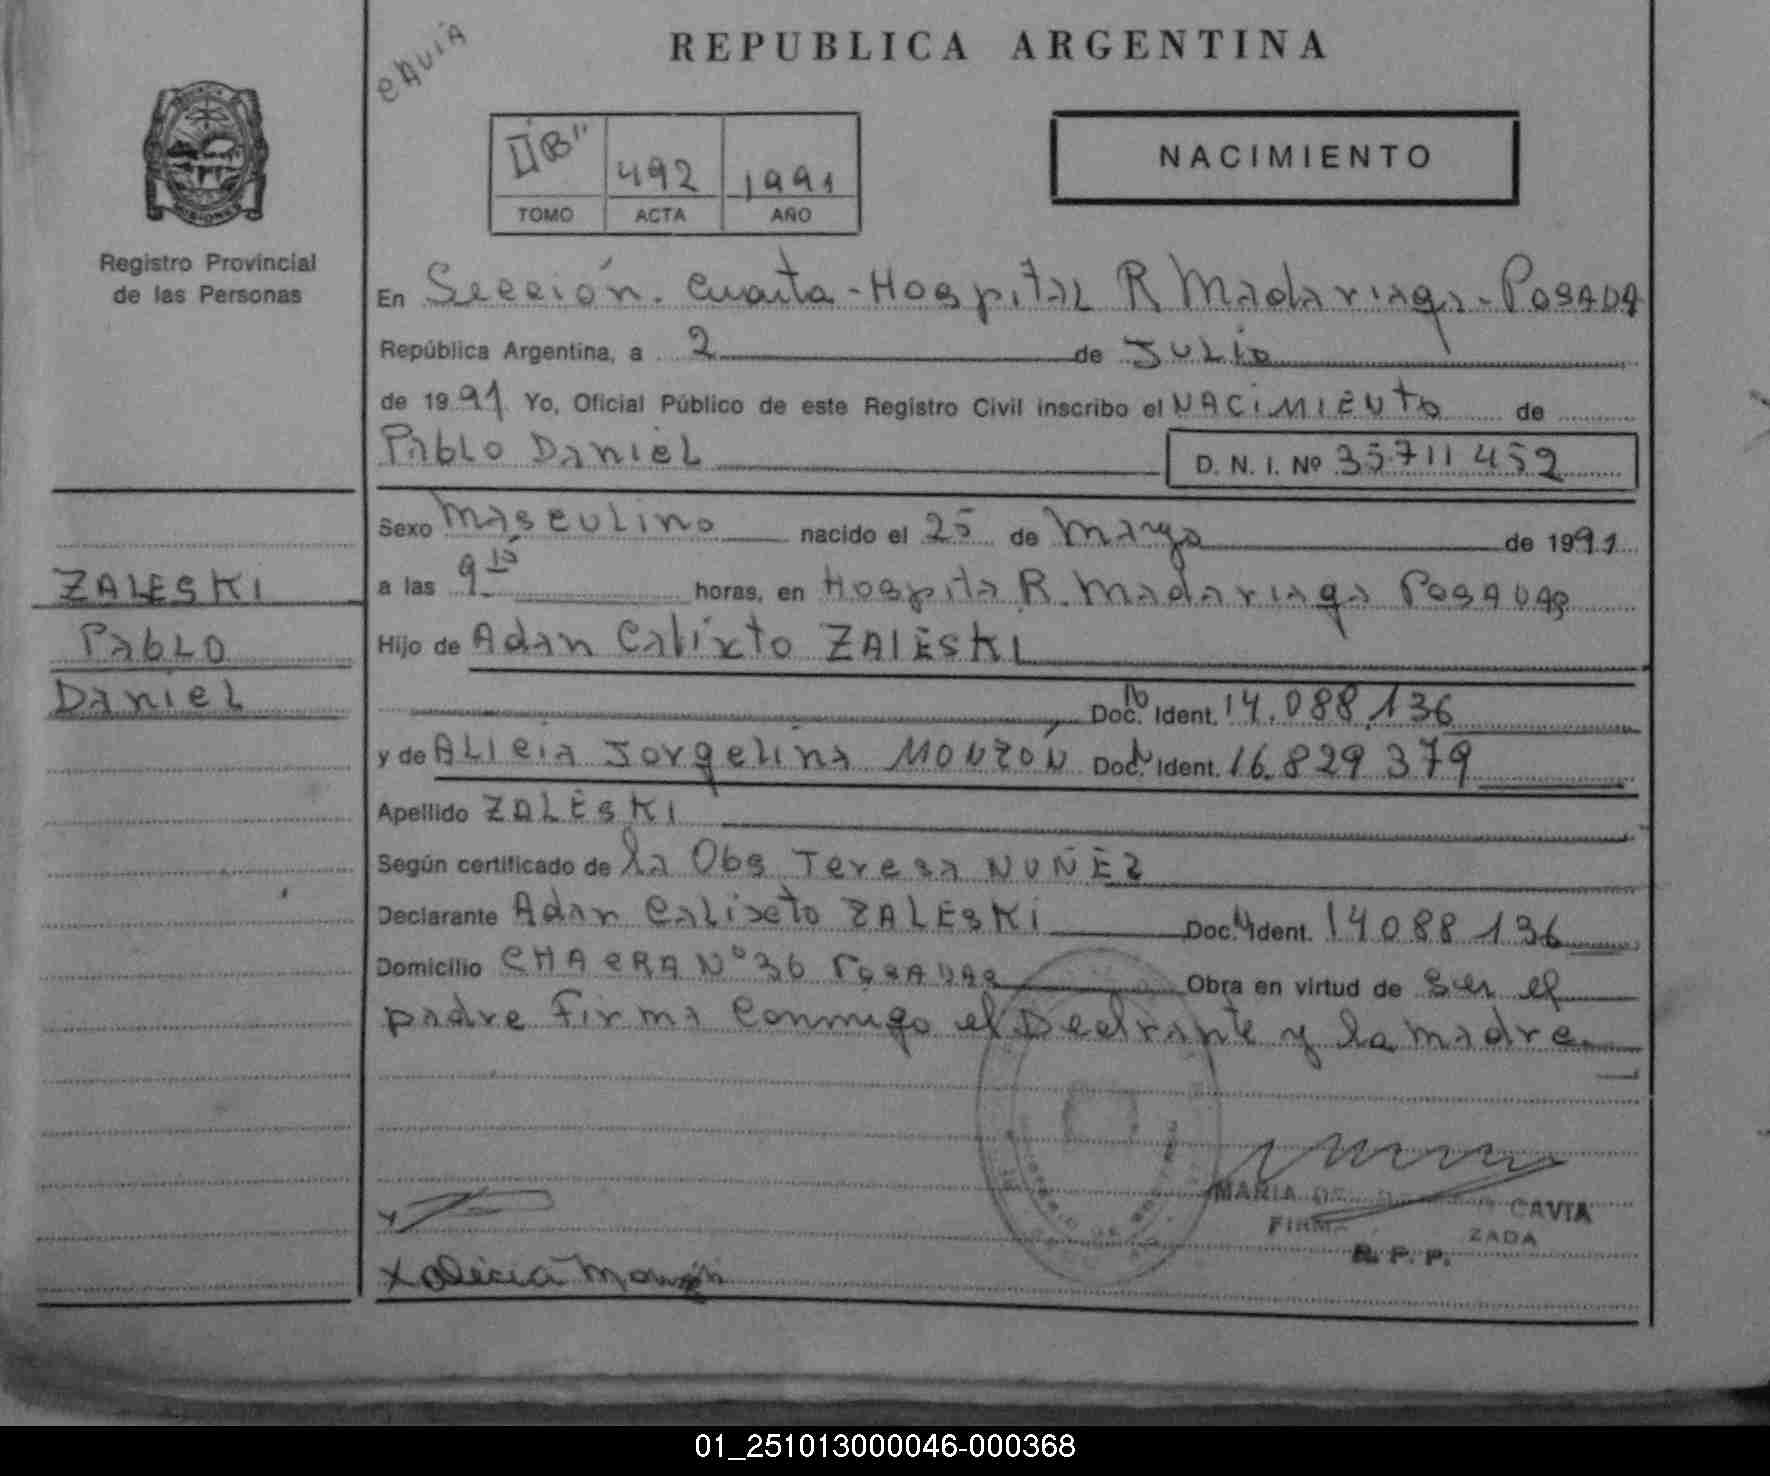 CAVIA
REPUBLICA ARGENTINA
NACIMIENTO
II "B" 492 1991
TOMO ACTA AÑO
MISIONES
Registro Provincial
de las Personas
En Sección. Cuarta - Hospital R Madariaga - POSADA
República Argentina, a 2 de JULIO
de 1991 Yo, Oficial Público de este Registro Civil inscribo el NACIMIENTO de
PABLO DANIEL
D. N. I. Nº 35711452
Sexo Masculino nacido el 25 de Mayo de 1991
a las 9 15 horas, en Hospital R. Madariaga POSADAS
ZALESKI
PABLO
DANIEL
Hijo de Adan Calixto ZALESKI
Doc. Ident. 14.088.136
y de ALICIA Jorgelina MONZÓN Doc. Ident. 16.829 379
Apellido ZALESKI
Según certificado de la Obs Teresa NUÑEZ
Declarante Adan Calixto ZALESKI Doc. Ident. 14088136
Domicilio CHACRA Nº 36 POSADAS Obra en virtud de ser el
padre Firma Conmigo el Declrante y la madre.
MARIA DE CAVIA
FIRMA ZADA
R. P. P.
x Alicia Monzón
01_251013000046-000368